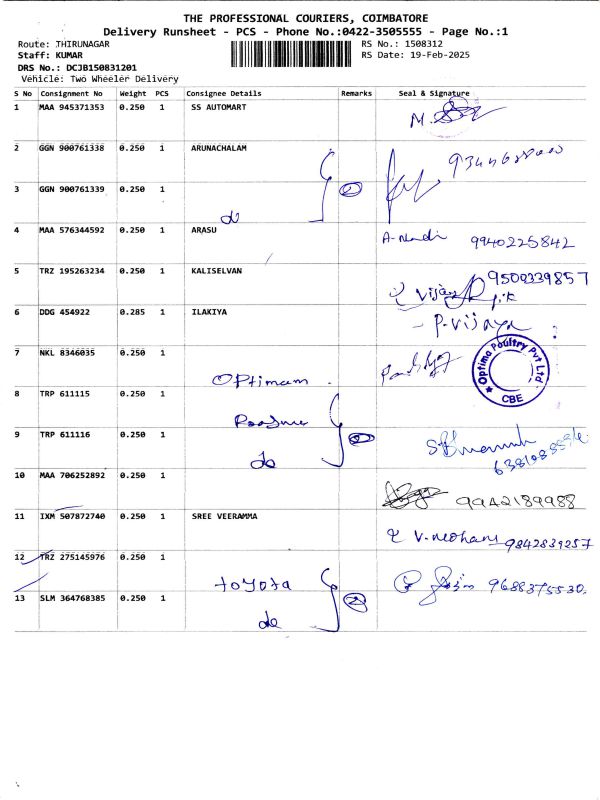 THE PROFESSIONAL COURIERS, COIMBATORE
Delivery Runsheet - PCS - Phone No.:0422-3505555 - Page No.:1
Route: THIRUNAGAR RS No.: 1508312
Staff: KUMAR RS Date: 19-Feb-2025
DRS No.: DCJB150831201
Vehicle: Two Wheeler Delivery
S No Consignment No Weight PCS Consignee Details Remarks Seal & Signature
1 MAA 945371353 0.250 1 SS AUTOMART
2 GGN 900761338 0.250 1 ARUNACHALAM
3 GGN 900761339 0.250 1 do 2
4 MAA 576344592 0.250 1 ARASU 9940225842
5 TRZ 195263234 0.250 1 KALISELVAN 9500339857
Vijay
6 DDG 454922 0.285 1 ILAKIYA P. Vijaya
7 NKL 8346035 0.250 1 Optimam
Optima Poultry Pvt Ltd.
CBE
8 TRP 611115 0.250 1
9 TRP 611116 0.250 1 do 2
10 MAA 706252892 0.250 1 9942189988
11 IXM 507872740 0.250 1 SREE VEERAMMA V. Mohan 9842839257
12 TRZ 275145976 0.250 1 toyota 9688375530
13 SLM 364768385 0.250 1 do 2